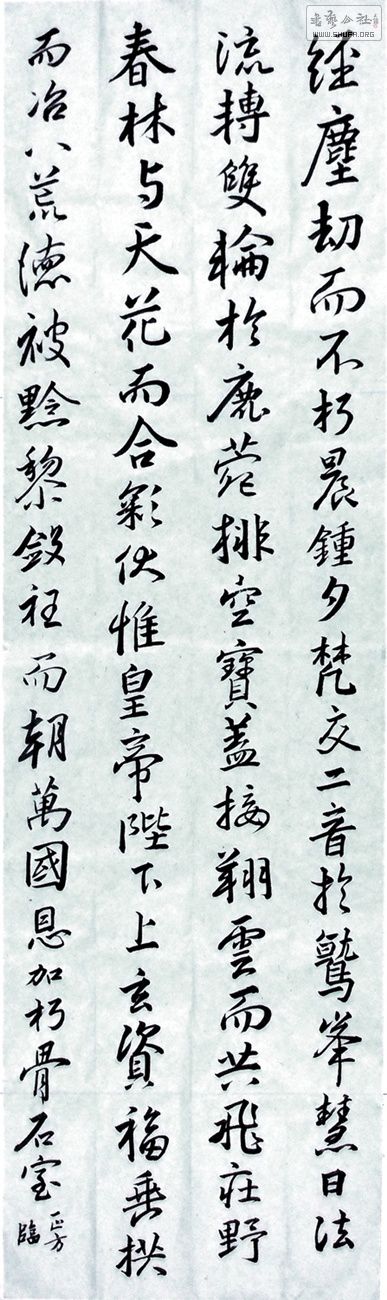 書藝公社
WWW.SHUFA.ORG
經塵劫而不朽晨鍾夕梵交二音於鷲峯慧日法
流轉雙輪於鹿菀排空寶蓋接翔雲而共飛莊野
春林与天花而合彩伏惟皇帝陛下上玄資福垂拱
而治八荒德被黔黎斂衽而朝萬國恩加朽骨石室
正方
臨